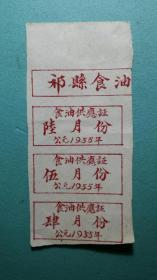 祁縣食油
食油供應証
陸月份
公元1955年
食油供應証
伍月份
公元1955年
食油供應証
肆月份
公元1955年